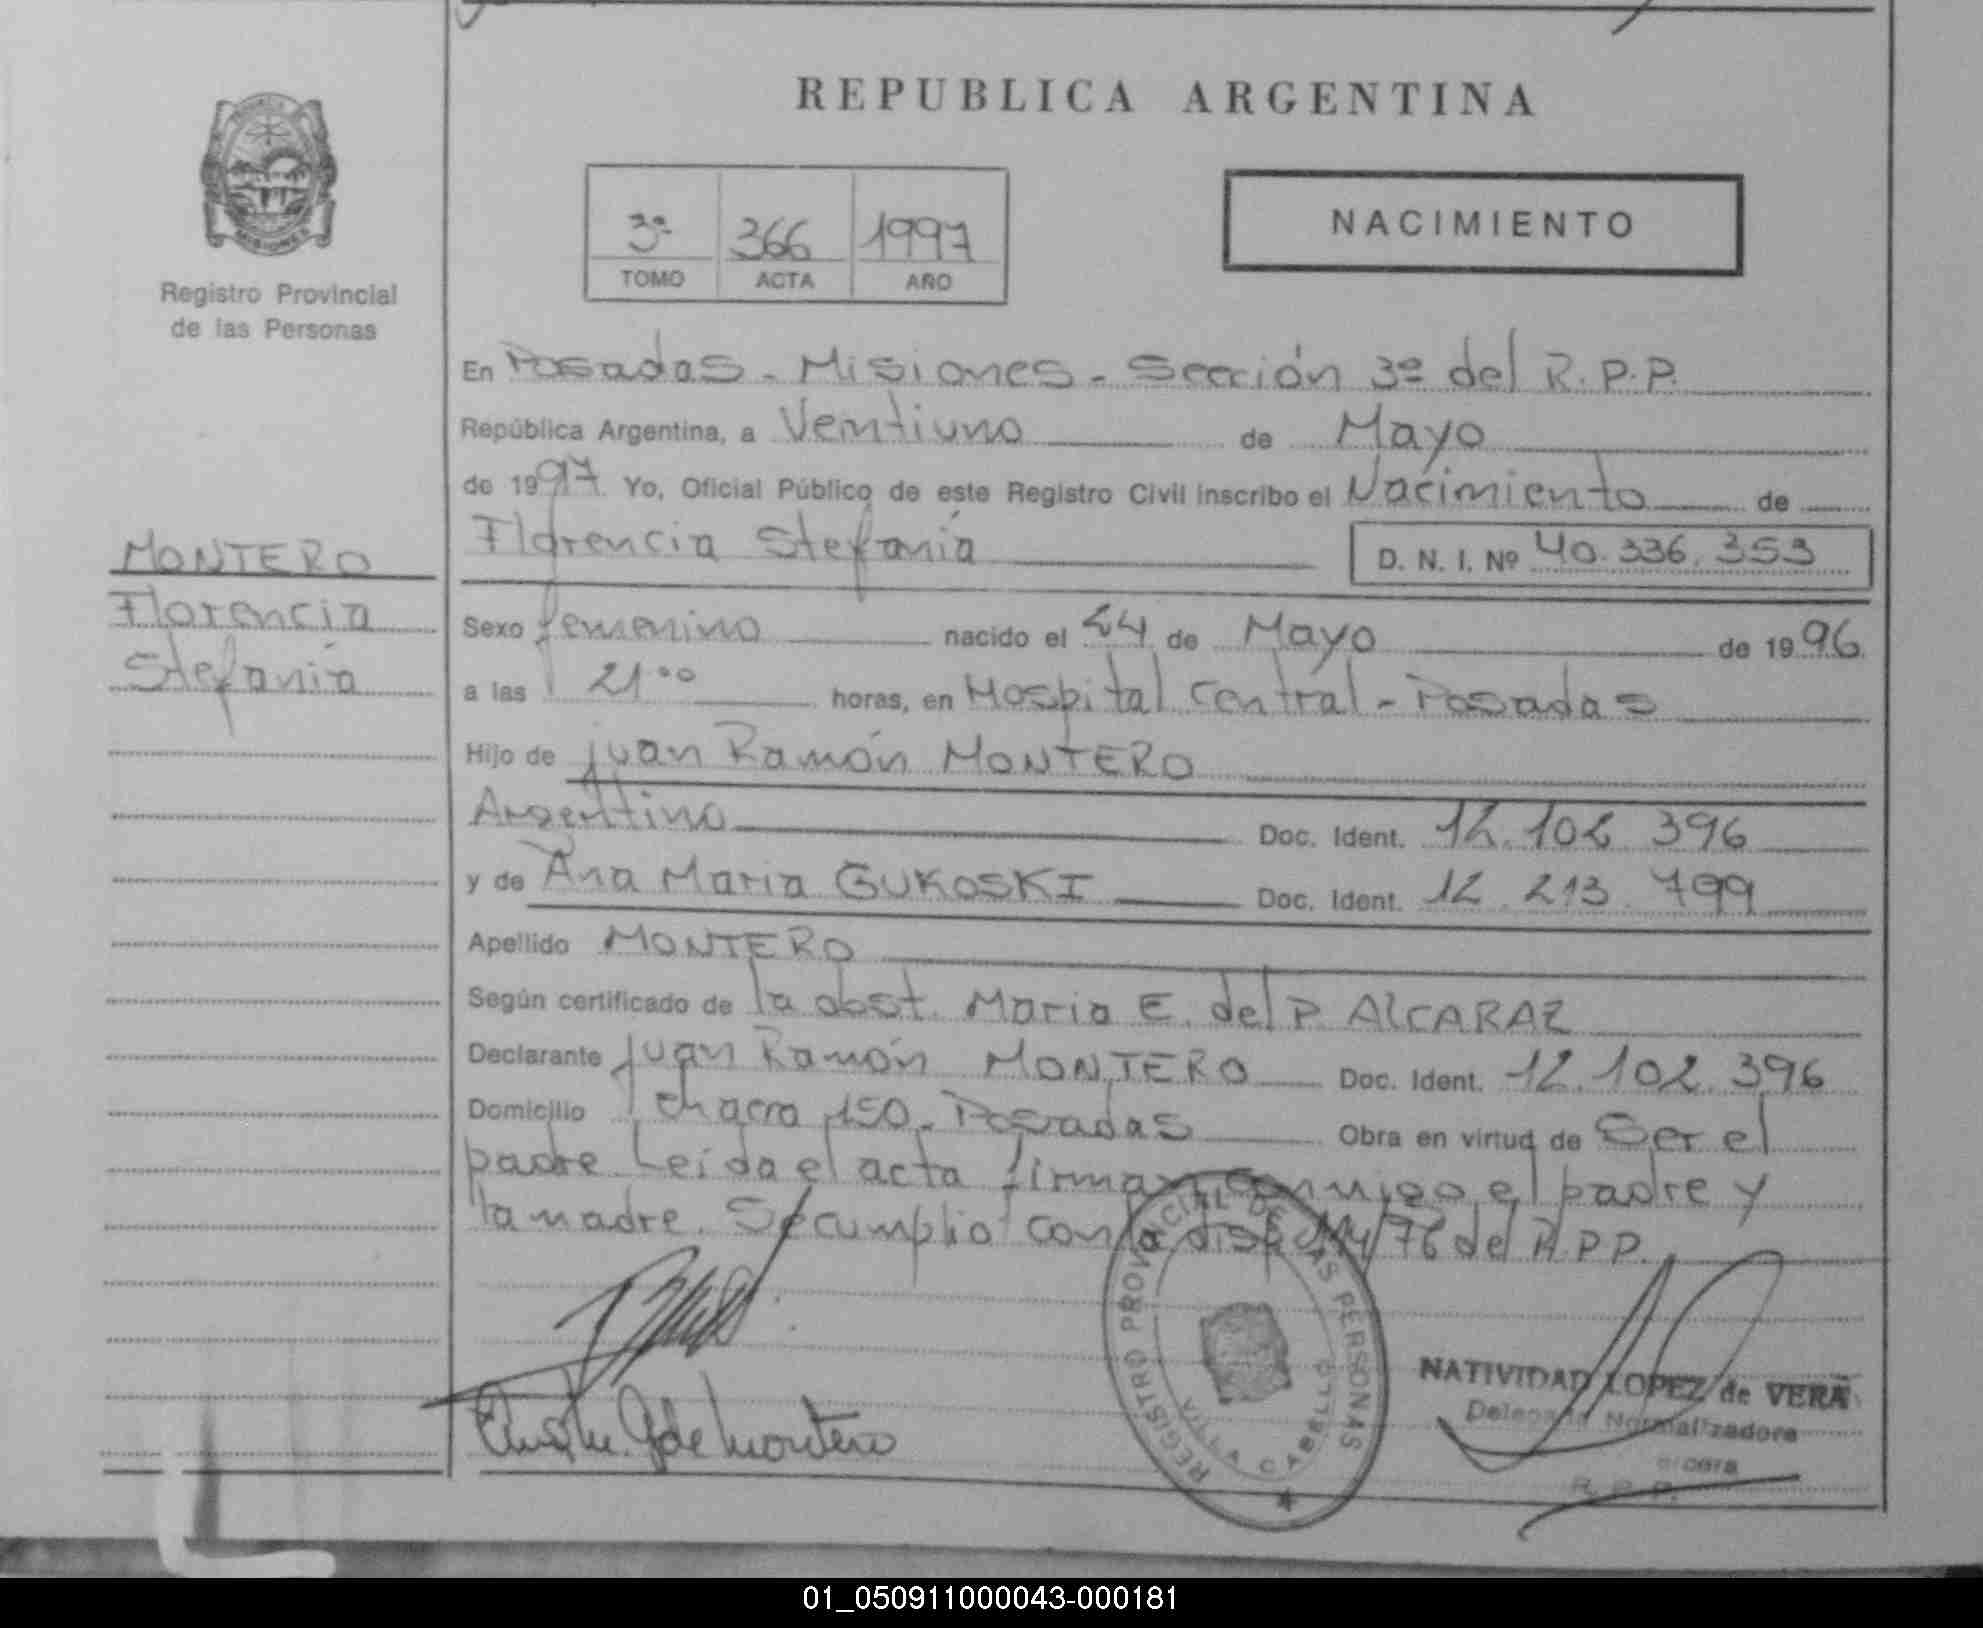 REPUBLICA ARGENTINA
Registro Provincial
de las Personas
MISIONES
3ª 366 1997
TOMO ACTA AÑO
NACIMIENTO
MONTERO
Florencia
Stefanía
En Posadas - Misiones - Sección 3ª del R.P.P.
República Argentina, a Ventiuno de Mayo
de 1997. Yo, Oficial Público de este Registro Civil inscribo el Nacimiento de
Florencia Stefanía
D. N. I. Nº 40.336.353
Sexo femenino nacido el 24 de Mayo de 1996.
a las 21⁰⁰ horas, en Hospital Central - Posadas
Hijo de Juan Ramón MONTERO
Argentino Doc. Ident. 12.102 396
y de Ana Maria GUKOSKI Doc. Ident. 12.213.799
Apellido MONTERO
Según certificado de la obst. Maria E. del P. ALCARAZ
Declarante Juan Ramón MONTERO Doc. Ident. 12.102.396
Domicilio Chacra 150 - Posadas Obra en virtud de Ser el
padre. Leída el acta firman conmigo el padre y
la madre. Se cumplio con la disp. /76 del R.P.P.
de Montero
REGISTRO PROVINCIAL DE LAS PERSONAS
VILLA CABELLO
NATIVIDAD LOPEZ de VERA
Delegada Normalizadora
R. P. P.
01_050911000043-000181